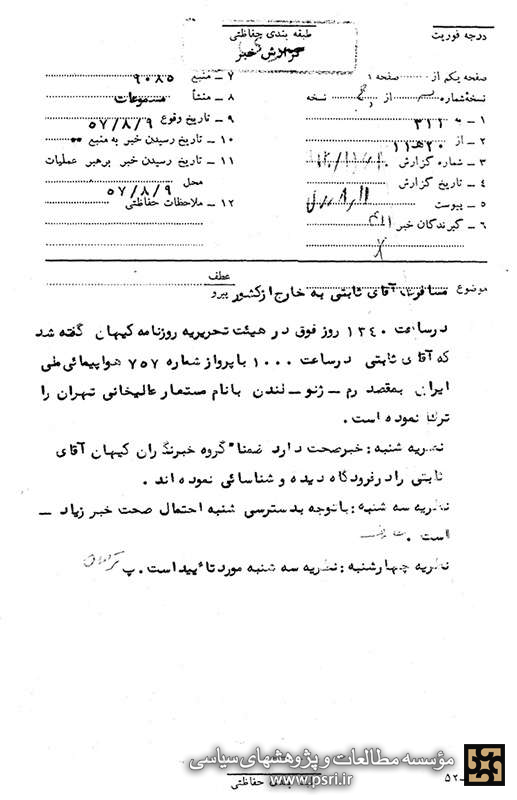 درجه فوریت
طبقه بندی حفاظتی
گزارش خبر
صفحه یکم از صفحه ۱
نسخه شماره از نسخه
۱ - به ۳۱۲
۲ - از ۲۰ هـ ۱۱
۳ - شماره گزارش
۴ - تاریخ گزارش
۵ - پیوست
۶ - گیرندگان خبر
۷ - منبع ۹۰۸۵
۸ - منشأ مسموعات
۹ - تاریخ وقوع ۵۷/۸/۹
۱۰ - تاریخ رسیدن خبر به منبع
۱۱ - تاریخ رسیدن خبر برهبر عملیات
محل ۵۷/۸/۹
۱۲ - ملاحظات حفاظتی
موضوع مسافرت آقای ثابتی به خارج از کشور
عطف
پیرو
درساعت ۱۳۴۰ روز فوق در هیئت تحریریه روزنامه کیهان گفته شد
که آقای ثابتی درساعت ۱۰۰۰ با پرواز شماره ۷۵۷ هواپیمائی ملی
ایران بمقصد رم - ژنو - لندن بانام مستعار عالیخانی تهران را
ترک نموده است .
نظریه شنبه : خبرصحت دارد ضمنا" گروه خبرنگاران کیهان آقای
ثابتی رادرفرودگاه دیده و شناسائی نموده اند .
نظریه سه شنبه : باتوجه بدسترسی شنبه احتمال صحت خبر زیاد -
است .
نظریه چهارشنبه : نظریه سه شنبه مورد تائید است . پ
مؤسسه مطالعات و پژوهشهای سیاسی
www.psri.ir
طبقه بندی حفاظتی
۵۲